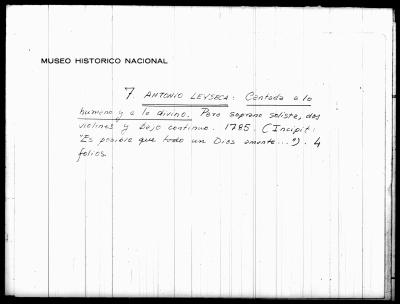 MUSEO HISTORICO NACIONAL
7. ANTONIO LEYSECA: Cantada a lo
humano y a lo divino. Para soprano solista, dos
violines y bajo continuo. 1785. (Incipit:
"Es posible que todo un Dios amante..."). 4
folios.